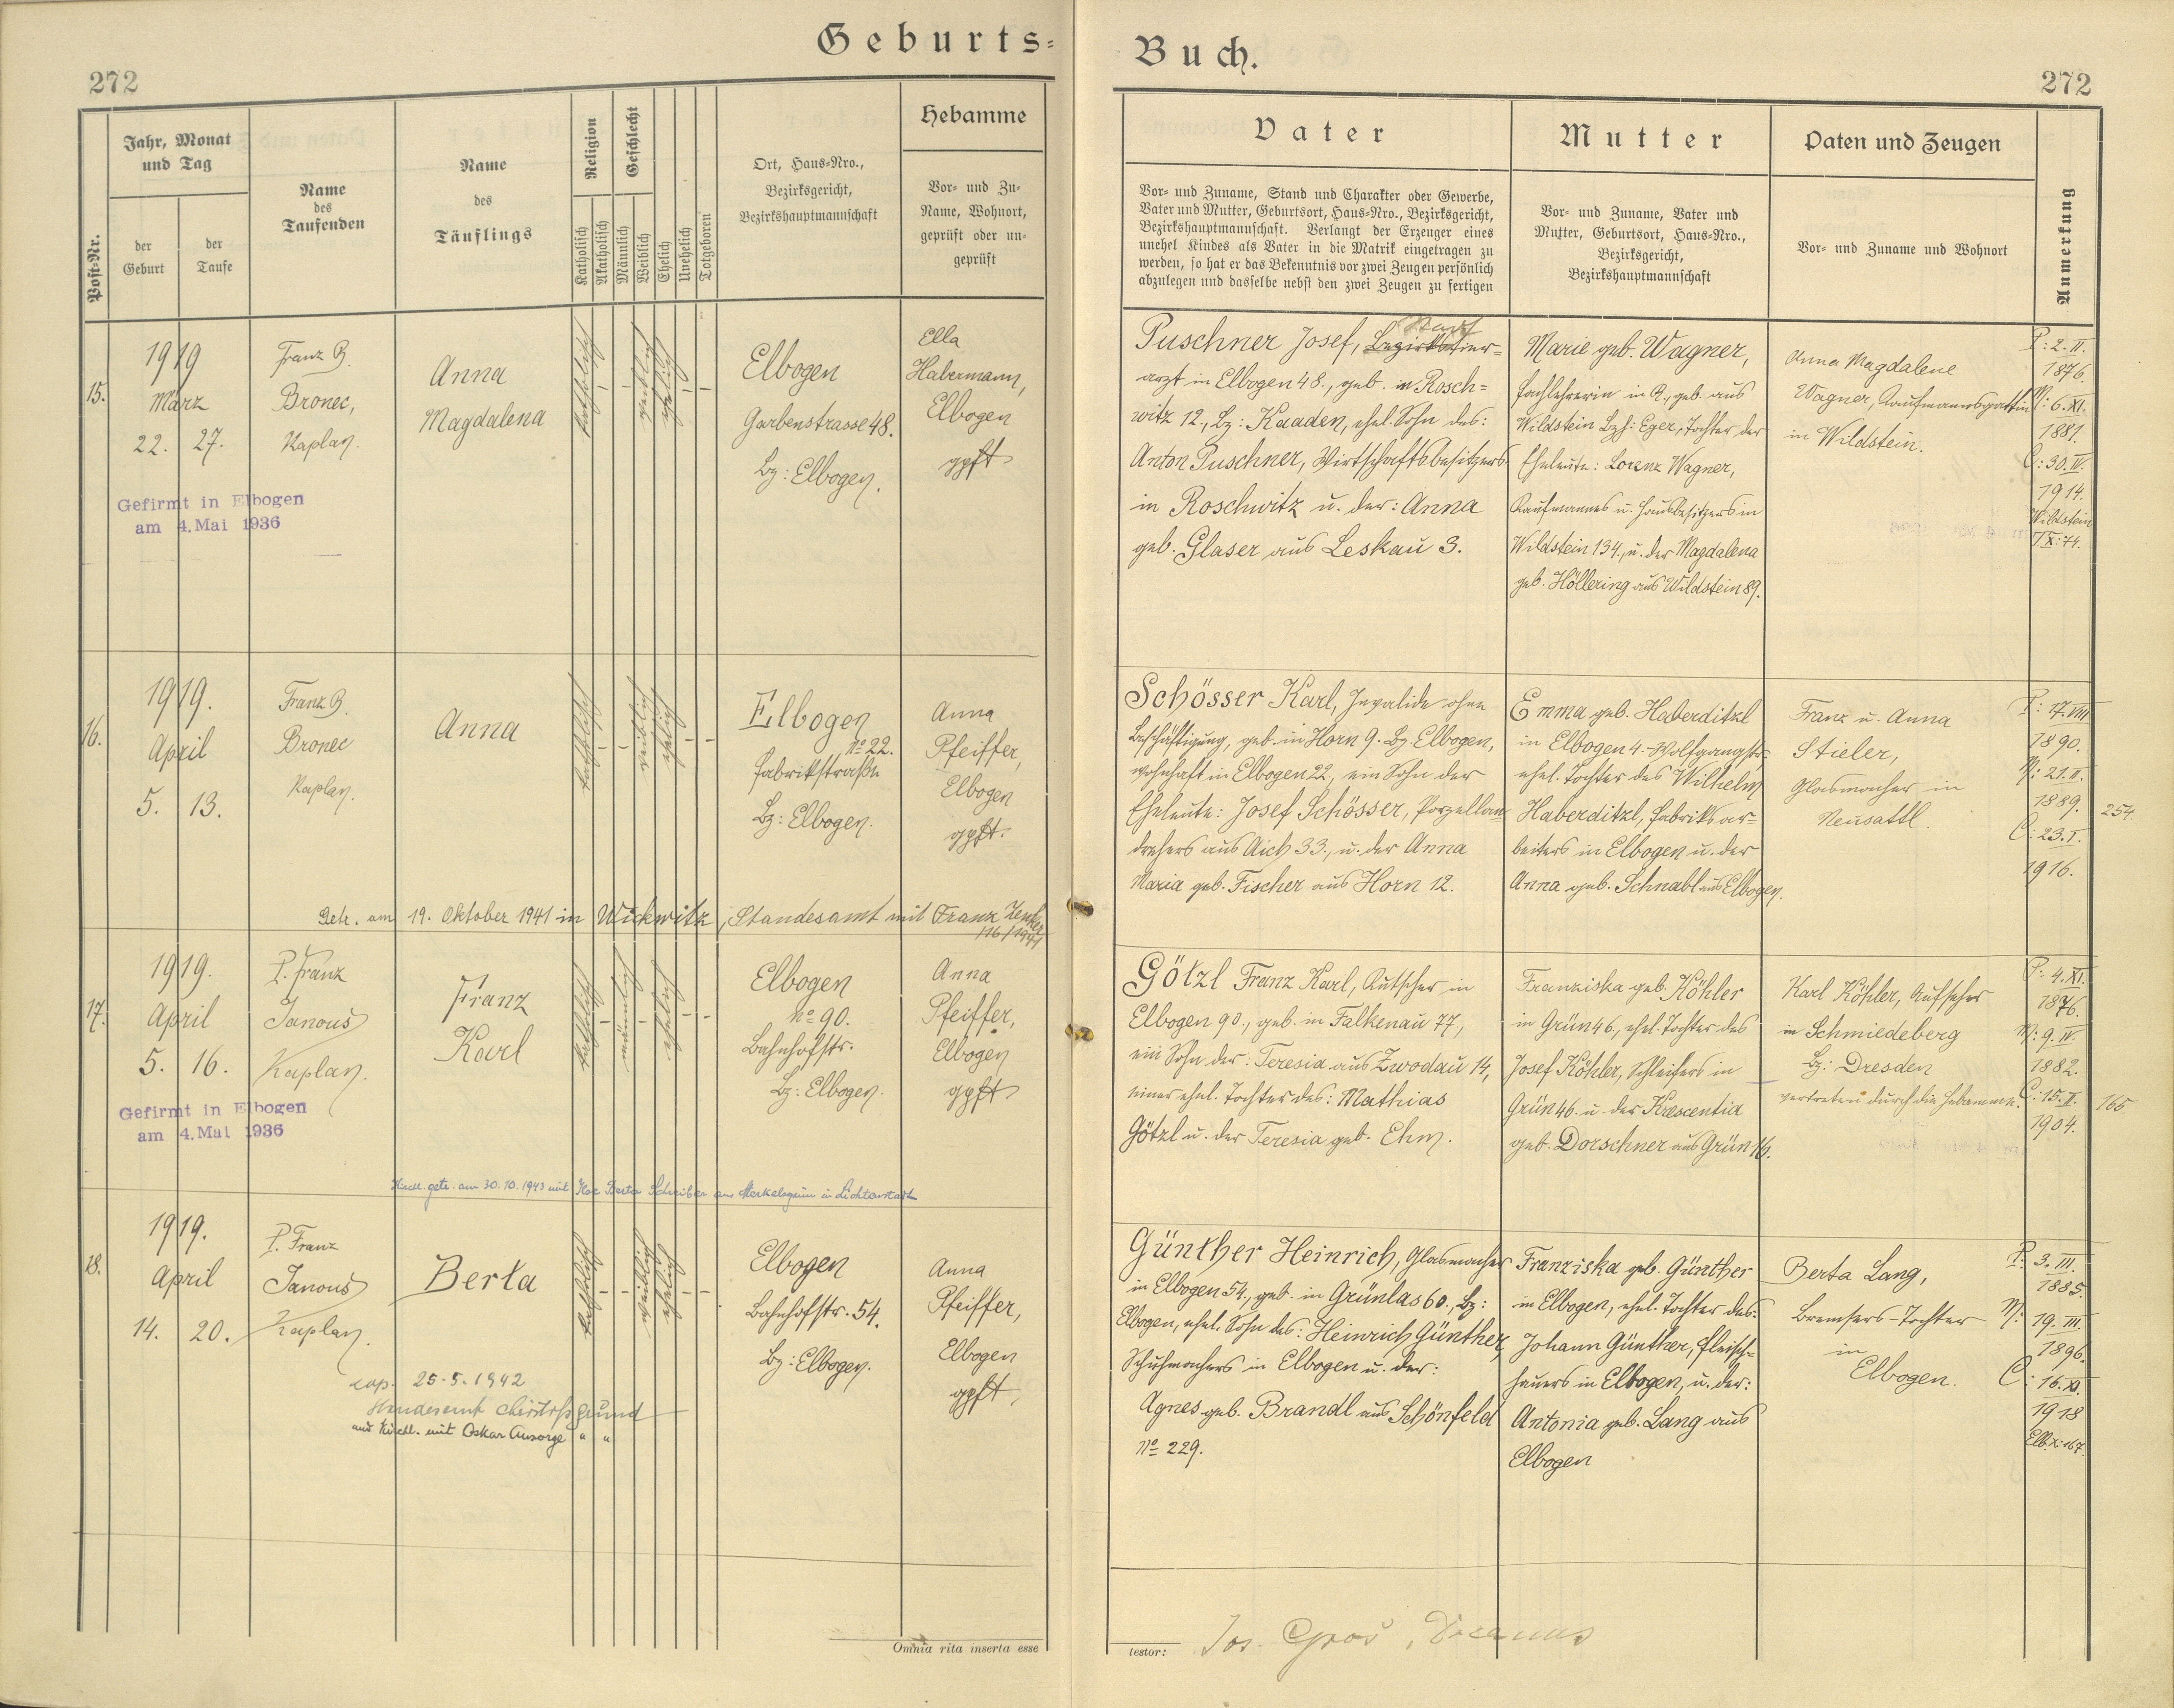 Geburts=
Buch.
272
272
Post=Nr.
Jahr, Monat
und Tag
der
Geburt
der
Taufe
Name
des
Taufenden
Name
des
Täuflings
Religion
Katholisch
Akatholisch
Geschlecht
Männlich
Weiblich
Ehelich
Unehelich
Totgeboren
Ort, Haus=Nro.,
Bezirksgericht,
Bezirkshauptmannschaft
Hebamme
Vor= und Zu=
Name, Wohnort,
geprüft oder un=
geprüft
Vater
Vor= und Zuname, Stand und Charakter oder Gewerbe,
Vater und Mutter, Geburtsort, Haus=Nro., Bezirksgericht,
Bezirkshauptmannschaft. Verlangt der Erzeuger eines
unehel Kindes als Vater in die Matrik eingetragen zu
werden, so hat er das Bekenntnis vor zwei Zeugen persönlich
abzulegen und dasselbe nebst den zwei Zeugen zu fertigen
Mutter
Vor= und Zuname, Vater und
Mutter, Geburtsort, Haus=Nro.,
Bezirksgericht,
Bezirkshauptmannschaft
Paten und Zeugen
Vor= und Zuname und Wohnort
Anmerkung
15.
1919
März
22. 27.
Franz B.
Bronec,
Kaplan.
Anna
Magdalena
katholisch
weiblich
ehelich
Elbogen
Garbenstrasse 48.
Bz: Elbogen.
Ella
Habermann,
Elbogen
gpft
Gefirmt in Elbogen
am 4. Mai 1936
Puschner Josef, Bezirkstier=
Stadt
arzt in Elbogen 48., geb. in Rosch=
witz 12., Bz: Kaaden, ehel. Sohn des:
Anton Puschner, Wirtschaftsbesitzers
in Roschwitz u. der: Anna
geb. Glaser aus Leskau 3.
Marie geb. Wagner,
Fachlehrerin in P., geb. aus
Wildstein Bzh: Eger, Tochter der
Eheleute: Lorenz Wagner,
Kaufmannes u. Hausbesitzers in
Wildstein 134., u. der Magdalena
geb. Höllering aus Wildstein 89.
Anna Magdalene
Wagner, Kaufmannsgattin
in Wildstein.
P: 2. II.
1876.
M: 6. XI.
1881.
C: 30. IV.
1914.
Wildstein
IX: 74.
16.
1919.
April
5. 13.
Franz B.
Bronec
Kaplan.
Anna
katholisch
weiblich
ehelich
Elbogen
No 22.
Fabrikstraße
Bz: Elbogen.
Anna
Pfeiffer,
Elbogen
gpft.
Getr. am 19. Oktober 1941 in Wickwitz, Standesamt mit Franz Zenker
/16/1941
Schösser Karl, Invalide ohne
Beschäftigung, geb. in Horn 9. Bz. Elbogen,
wohnhaft in Elbogen 22, ein Sohn der
Eheleute: Josef Schösser, Porzellan
drehers aus Aich 33., u. der Anna
Maria geb. Fischer aus Horn 12.
Emma geb. Haberditzl
in Elbogen 4.-Wolfgangstr.
ehel. Tochter des Wilhelm
Haberditzl, Fabriksar=
beiters in Elbogen u. der
Anna geb. Schnabl aus Elbogen.
Franz u. Anna
Stieler,
Glasmacher in
Neusattl.
P: 17. VIII.
1890.
M: 21. II.
1889.
C: 23. I.
1916.
254.
17.
1919.
April
5. 16.
P. Franz
Janous
Kaplan.
Franz
Karl
katholisch
männlich
ehelich
Elbogen
No 90.
Bahnhofstr.
Bz: Elbogen.
Anna
Pfeiffer,
Elbogen
gpft
Gefirmt in Elbogen
am 4. Mai 1936
Kirchl. getr. am 30.10.1943 mit Berta Schreiber aus Merkelsgrün in Lichtenstadt
Götzl Franz Karl, Kutscher in
Elbogen 90., geb. in Falkenau 77,
ein Sohn der: Teresia aus Zwodau 14,
einer ehel. Tochter des: Mathias
Götzl u. der Teresia geb. Ehm.
Franziska geb. Köhler
in Grün 46., ehel. Tochter des
Josef Köhler, Schleifers in
Grün 46. u. der Krescentia
geb. Dorschner aus Grün 16.
Karl Köhler, Aufseher
in Schmiedeberg
Bz: Dresden
vertreten durch die Hebamme.
P: 4. XI.
1876.
M: 9. IV.
1882.
C: 15. II.
1904.
165.
18.
1919.
April
14. 20.
P. Franz
Janous
Kaplan.
Berta
katholisch
weiblich
ehelich
Elbogen
Bahnhofstr. 54.
Bz: Elbogen.
Anna
Pfeiffer,
Elbogen
gpft.
cop. 25.5.1942
Standesamt Christofsgrund
und kirchl. mit Oskar Ansorge " "
Günther Heinrich, Glasmacher
in Elbogen 54., geb. in Grünlas 60., Bz:
Elbogen, ehel. Sohn des: Heinrich Günther,
Schuhmachers in Elbogen u. der:
Agnes geb. Brandl aus Schönfeld
No 229.
Franziska geb. Günther
in Elbogen, ehel. Tochter des:
Johann Günther, Fleisch-
hauers in Elbogen, u. der:
Antonia geb. Lang aus
Elbogen
Berta Lang,
Bremsers-Tochter
in
Elbogen.
P. 3. III.
1885.
M: 19. III.
1896.
C: 16. XI.
1918
Elb. X: 167.
Omnia rita inserta esse
testor:
Jos. Groß,